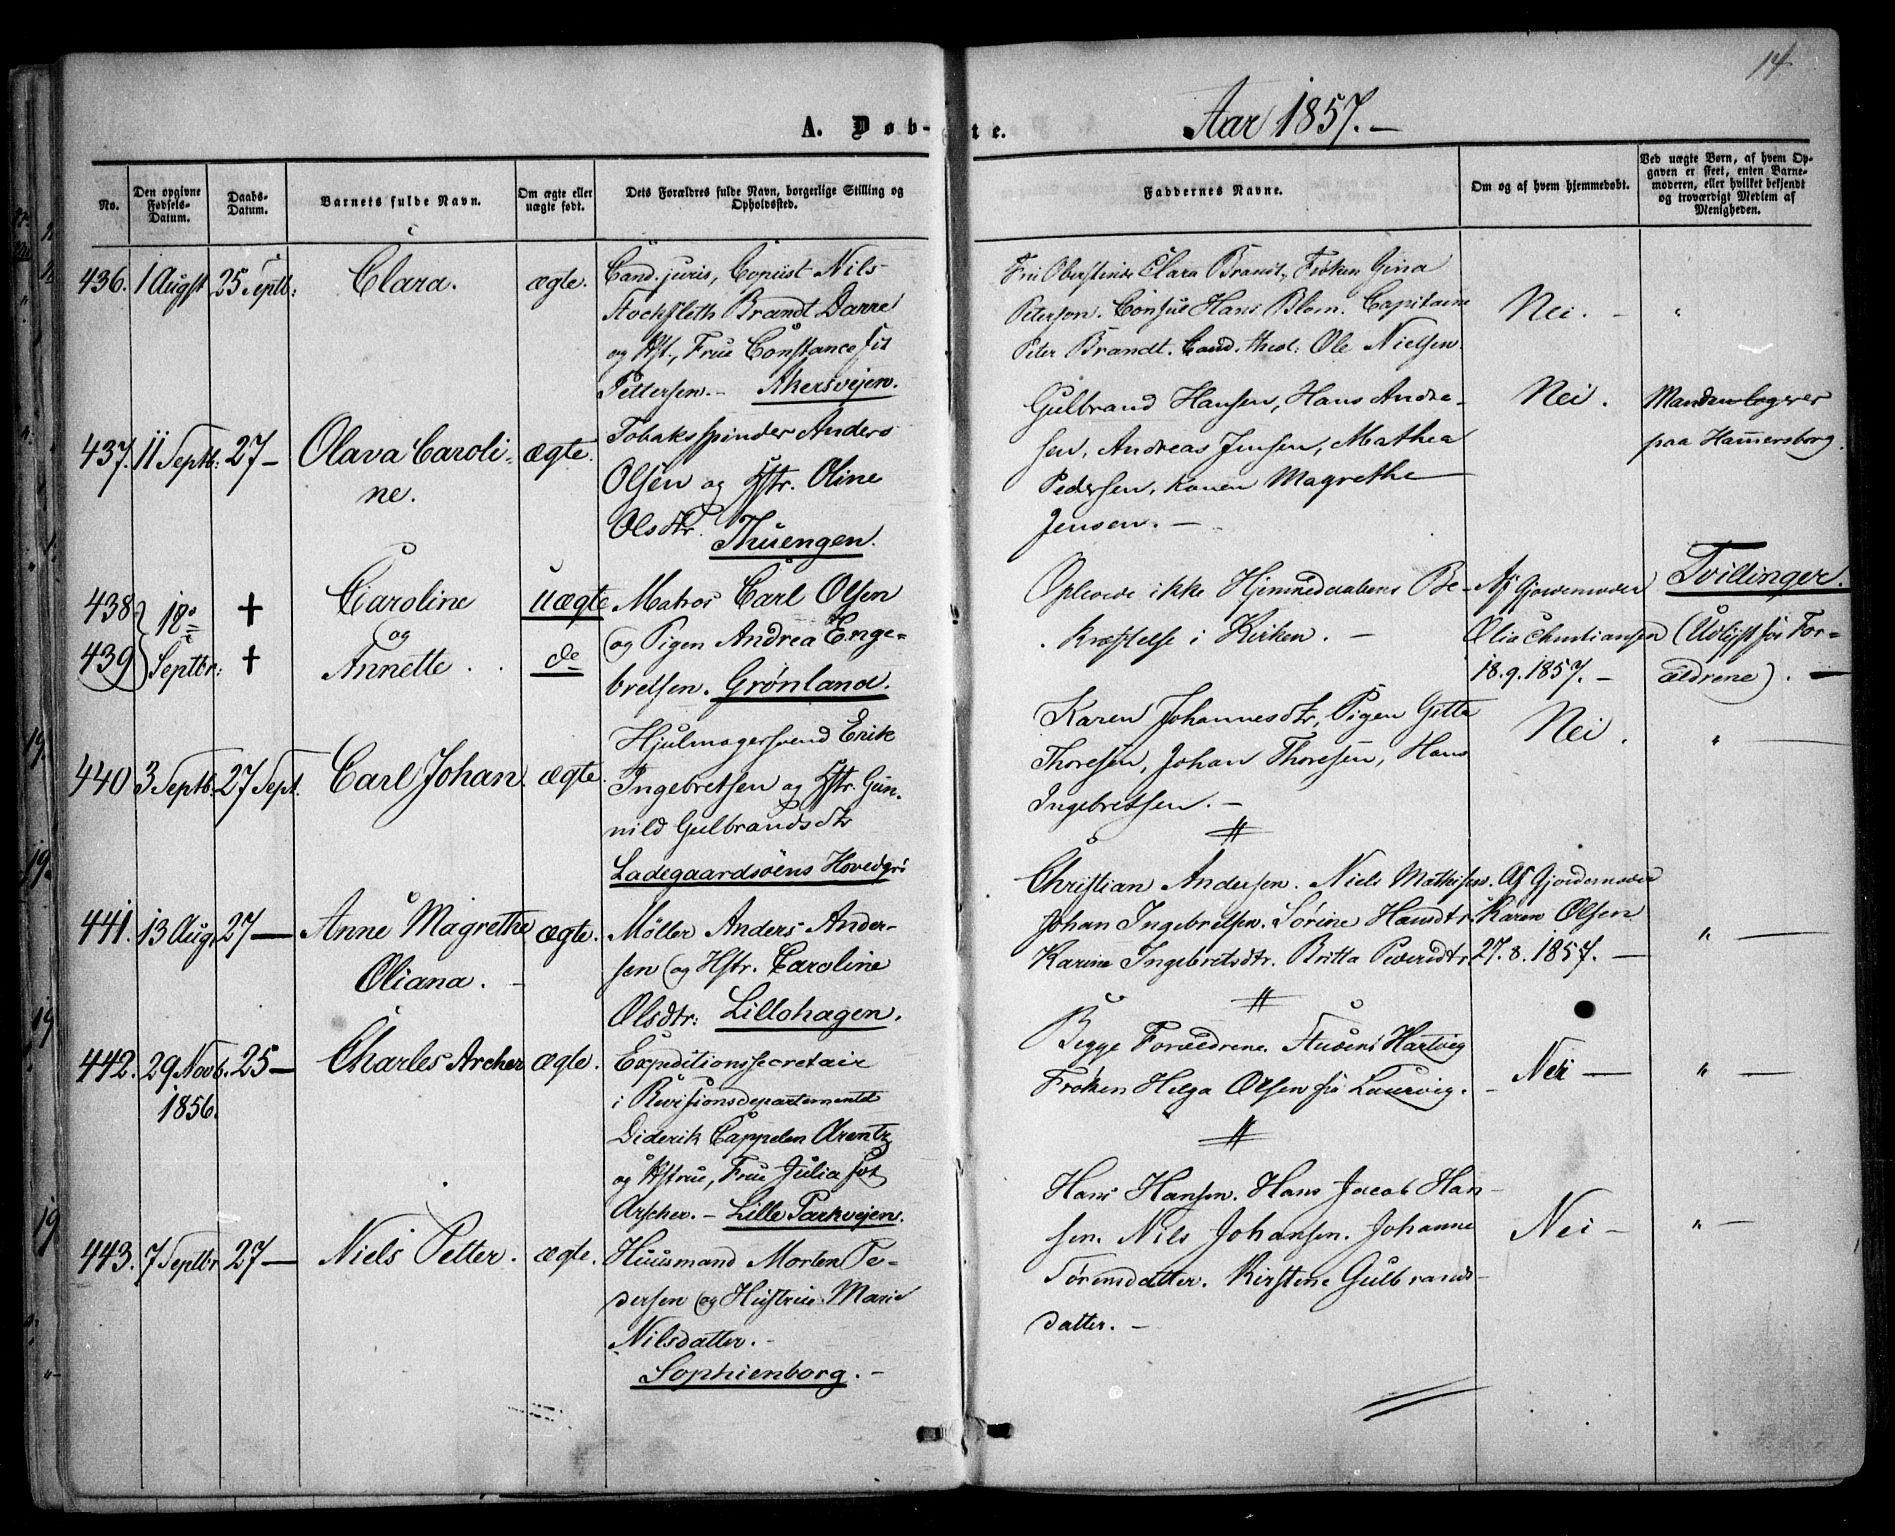 14
A. Døb-te.
Aar 1857. —
No.
Den opgivne Fødsels-Datum.
Daabs-Datum.
Barnets fulde Navn.
Om ægte eller uægte født.
Dets Forældres fulde Navn, borgerlige Stilling og Opholdssted.
Faddernes Navne.
Om og af hvem hjemmedøbt.
Ved uægte Børn, af hvem Opgaven er skeet, enten Barnemoderen, eller hvilket bekjendt og troværdigt Medlem af Menigheden.
436. 1 Augst 25 Septb: Clara. ægte.
Cand. juris, Copiist Nils
Stockfleth Brandt Darre
og Hst., Frue Constance fød
Pettersen. — Akersvejen.
Clara Brandt, Frøken Gina
Peterson. Consul Hans Blom. Capitaine
Peter Brandt. Cand. theol: Ole Nielsen.
Nei. — "
437. 11 Septb: 27 — Olava Caroli-
ne. ægte.
Tobaksspinder Anders
Olsen og Hstr. Oline
Olsdtr. Thuengen.
Gulbrand Hansen, Hans Andre-
sen, Andreas Jensen, Mathea
Pedersen, Konen Magrethe
Jensen. —
Nei.
Manden logerer
paa Hammersborg.
438 18de + Caroline uægte
og
439 Septbr: + Annette. de
Matros Carl Olsen
og Pigen Andrea Enge-
bretsen. Grønland.
Oplevede ikke Hjemmedaabens Be-
kræftelse i Kirken. —
Af Gjordemoder
Olia Christiansen
18. 9. 1857. —
Tvillinger.
(Udlyst for For-
ældrene). —
440 3 Septb. 27 Sept. Carl Johan. ægte.
Hjulmagersvend Erik
Ingebretsen og Hstr. Gun-
nild Gulbrandsdtr
Ladegaardsøens Hovedgrd
Karen Johannesdtr, Pigen Gitta
Thoresen, Johan Thoresen, Hans
Ingebretsen. —
Nei. " —
441. 13 Aug. 27 — Anne Magrethe
Oliana. — ægte.
Møller Anders Ander-
sen og Hstr. Caroline
Olsdtr: Lillohagen.
Christian Andersen. Niels Mathisen.
Johan Ingebretsen. Sørine Hansdtr.
Karine Ingebretsdtr. Britta Pedersdtr.
Af Gjordemoder
Karen Olsen
27. 8. 1857. —
" —
442. 29 Novb. 25 — Charles Archer ægte.
1856.
Expeditionssecretair
i Revisionsdepartementet
Diderik Cappelen Arentz
og Hstrue, Frue Julia fød
Archer. — Lille Parkvejen.
Begge Forældrene. Student Hartvig
Frøken Helga Olsen fra Laurvig. —
Nei — " —
443. 7 Septbr 27 — Niels Petter. ægte.
Huusmand Morten Pe-
dersen og Hustrue Marie
Nilsdatter. —
Sophienborg. —
Hans Hansen. Hans Jacob Han-
sen. Nils Johansen. Johanne
Sørensdatter. Kirstene Gulbrands-
datter. —
Nei — " —